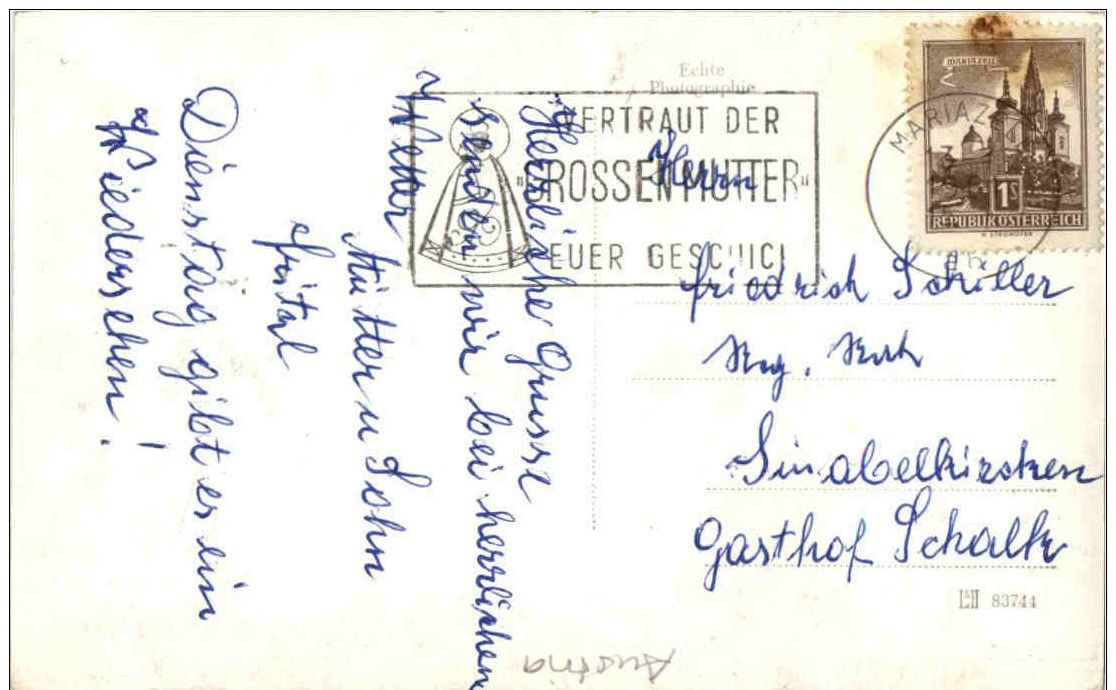 Echte
Photographie
VERTRAUT DER
"GROSSEN MUTTER"
EUER GESCHICK
MARIAZELL
MARIAZELL
1S
REPUBLIK ÖSTERREICH
Herzliche Grüsse
senden wir bei herrlichen
Wetter
Mutter u Sohn
Dienstag gibt es ein
Wiedersehen!
Herrn
Friedrich Schiller
Sinabelkirchen
Gasthof Schalk
L&H 83744
Austria